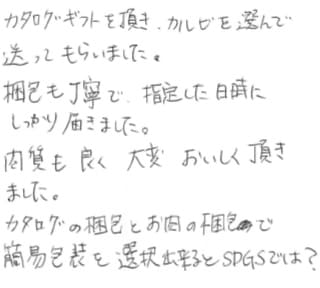 カタログギフトを頂き、カルビを選んで
送ってもらいました。
梱包も丁寧で、指定した日時に
しっかり届きました。
肉質も良く 大変 おいしく頂き
ました。
カタログの梱包とお肉の梱包で
簡易包装を選択出来るとSDGSでは？